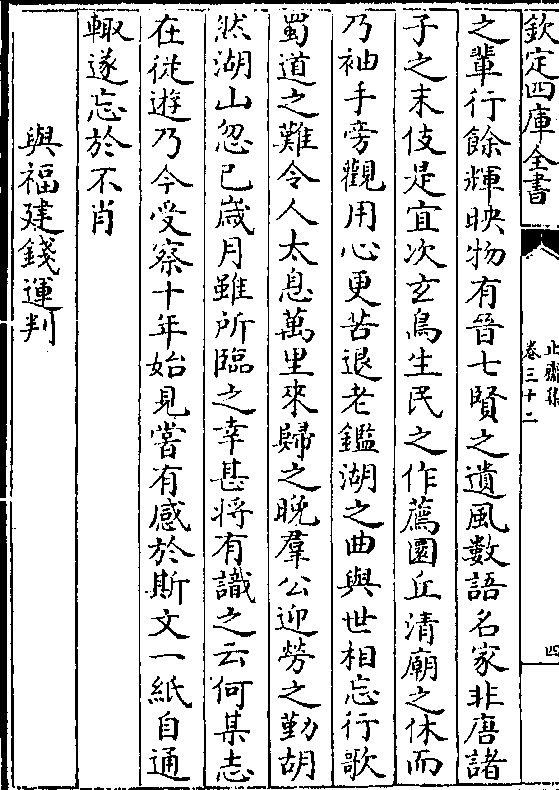 欽定四庫全書
止齋集
卷三十二
四
之輩行餘輝映物有晉七賢之遺風數語名家非唐諸
子之末伎是宜次玄鳥生民之作薦圜丘清廟之休而
乃袖手旁觀用心更苦退老鑑湖之曲與世相忘行歌
蜀道之難令人太息萬里來歸之晚羣公迎勞之勤胡
然湖山忽已歳月雖所臨之幸甚將有識之云何某志
在從遊乃今受察十年始見嘗有感於斯文一紙自通
輙遂忘於不肖
與福建錢運判